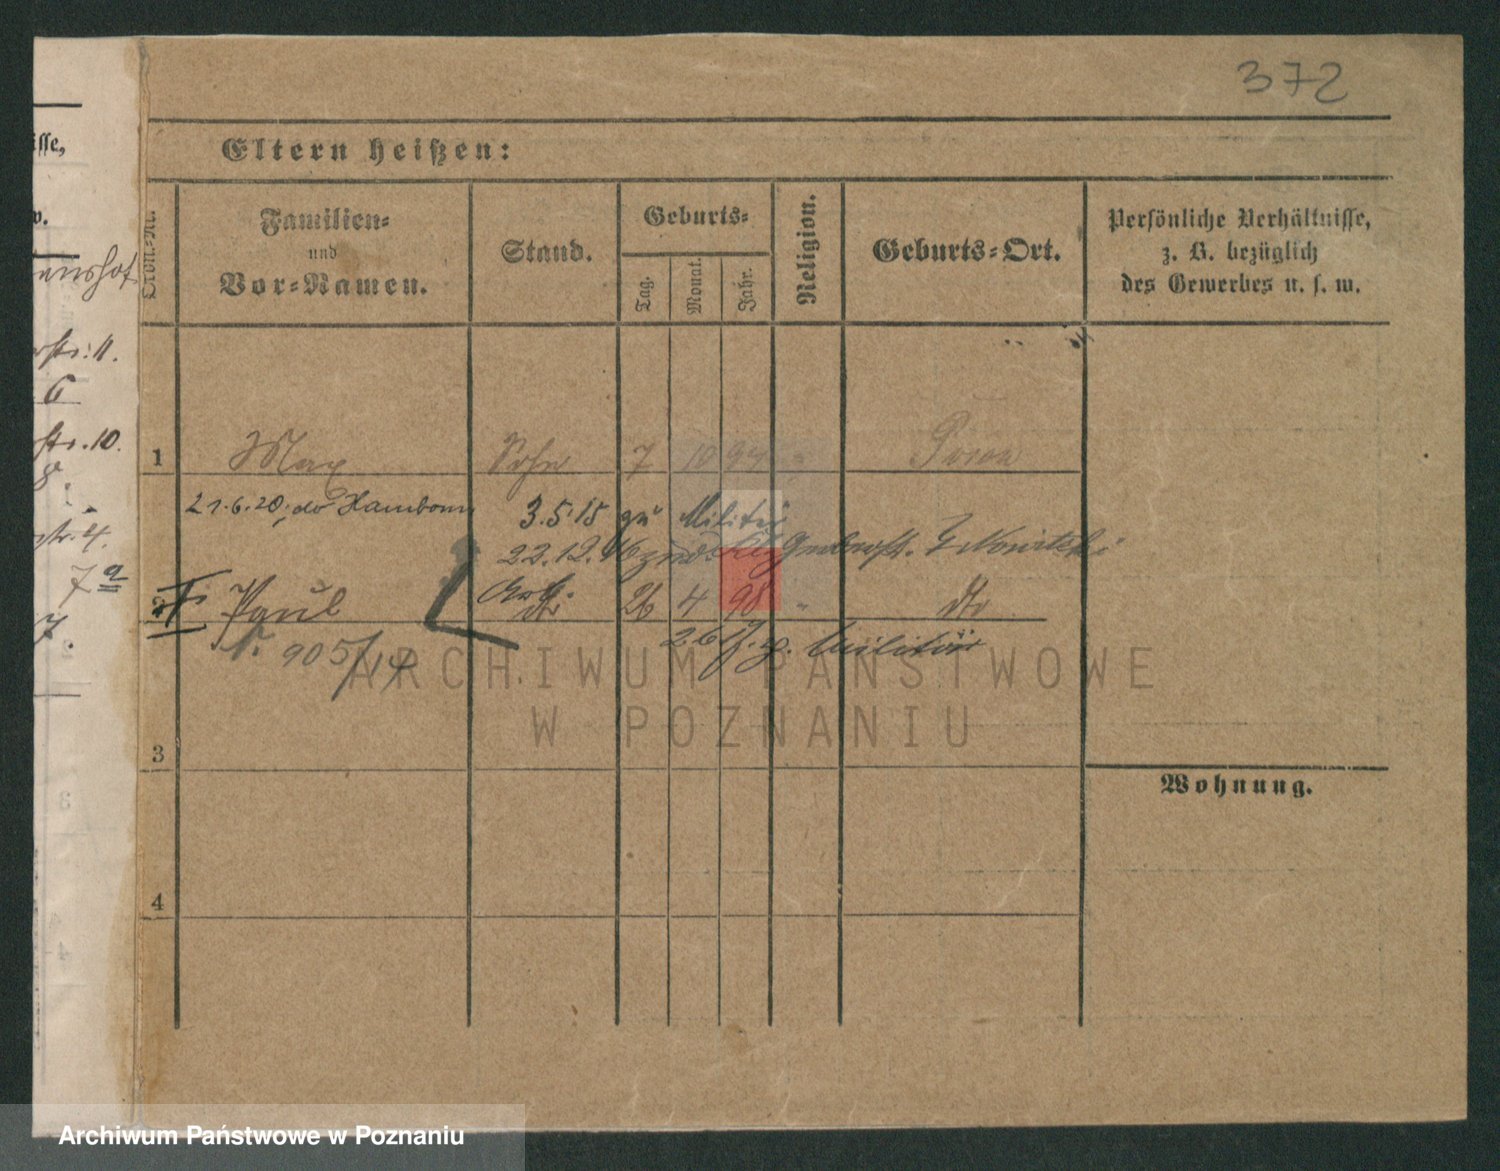 372
isse,
w.
enshof
str. 11.
6
str. 10.
8.
str. 4.
7 a
7.
Eltern heißen:
Familien-
und
Vor-Namen.
Stand.
Geburts-
Tag.
Monat.
Jahr.
Religion.
Geburts-Ort.
Persönliche Verhältnisse,
z. B. bezüglich
des Gewerbes u. s. w.
1 Max Sohn 7 10 94 " Posen
21.6.20, do Hamborn
3.5.15 zu Militär
22.12.16
2 Paul dto 26 4 98 " dto
26 z. Militär
905/14
3
Wohnung.
4
ARCHIWUM PAŃSTWOWE
W POZNANIU
Archiwum Państwowe w Poznaniu